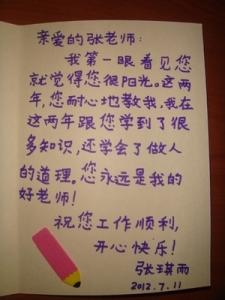 亲爱的张老师:
我第一眼看见您
就觉得您很阳光。这两
年,您耐心地教我,我在
这两年跟您学到了很
多知识,还学会了做人
的道理。您永远是我的
好老师!
祝您工作顺利,
开心快乐!
张琪雨
2012.7.11